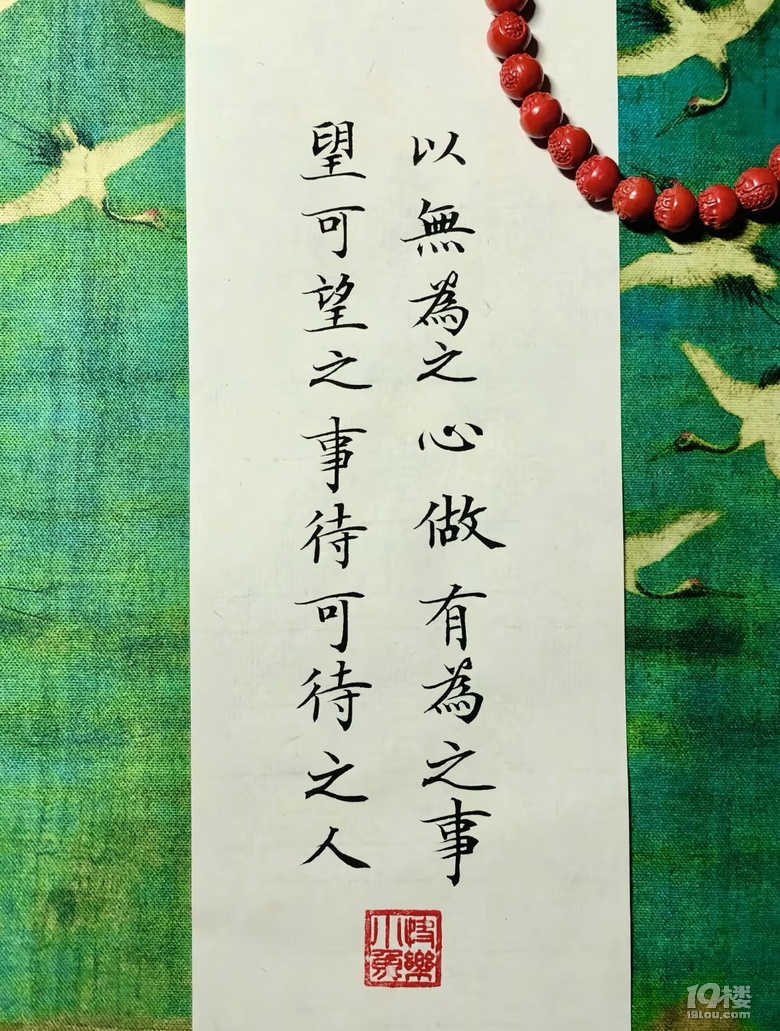 以無為之心做有為之事
望可望之事待可待之人
19楼
19lou.com